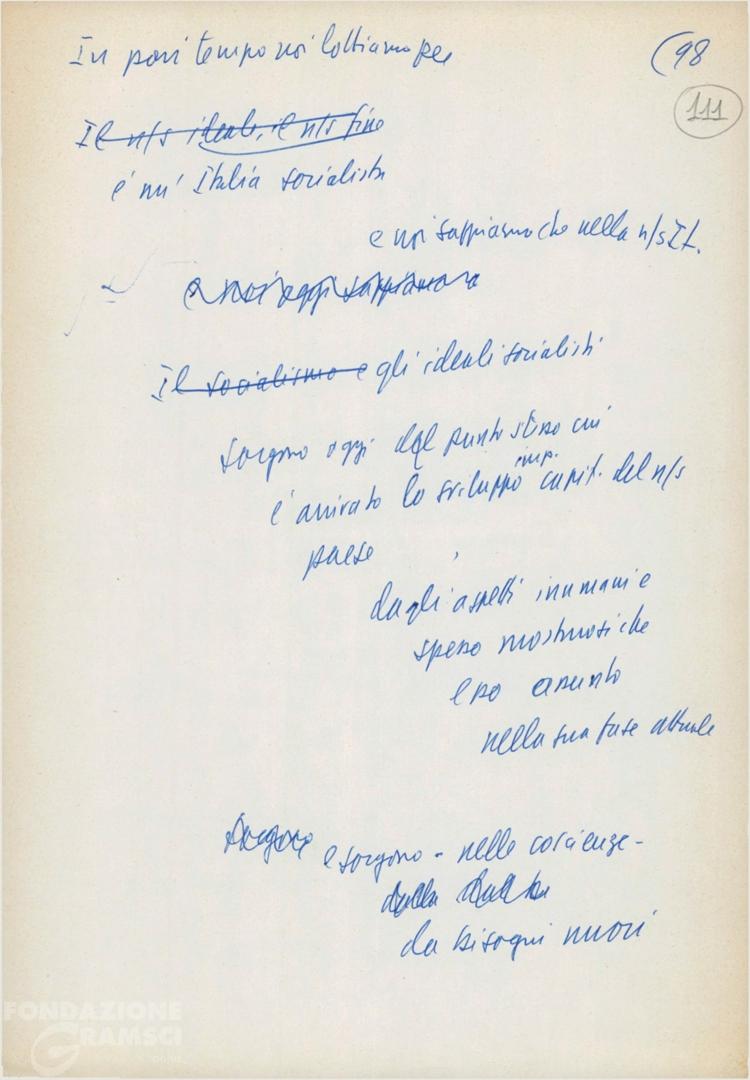 In pari tempo noi lottiamo per
(98
111
Il n/s ideale, il n/s fine
è un' Italia socialista
e noi sappiamo che nella n/s It.
e noi oggi sappiamo
Il socialismo e gli ideali socialisti
sorgono oggi dal punto stesso cui
imp.
è arrivato lo sviluppo capit. del n/s
paese
dagli aspetti inumani e
spesso mostruosi che
esso assunto
nella sua fase attuale
sorgono e sorgono - nelle coscienze -
dalla
da bisogni nuovi
FONDAZIONE
GRAMSCI